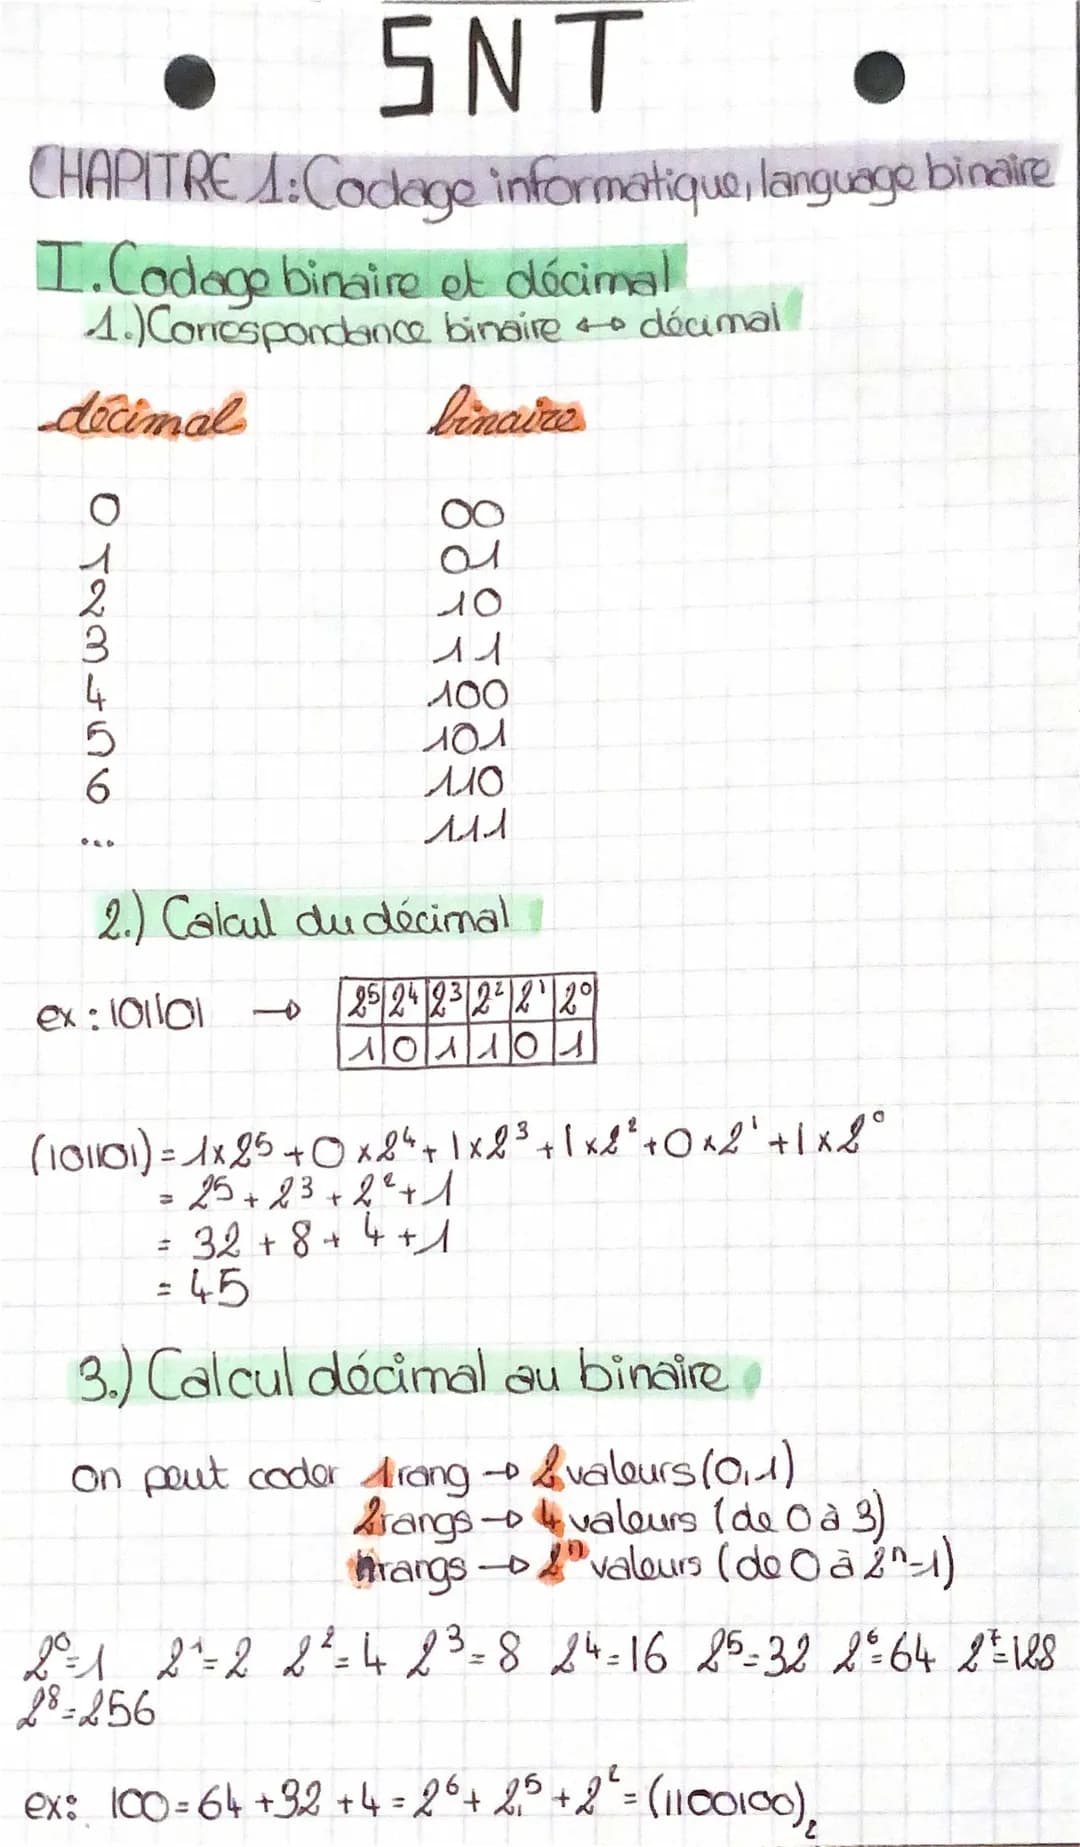 SNT
CHAPITRE 1: Codage informatique, language binaire
I. Codage binaire et décimal
1.) Correspondance binaire ↔ décimal
décimal binaire
0 00
1 01
2 10
3 11
4 100
5 101
6 110
... 111
2.) Calcul du décimal
ex : 101101 → 2⁵ 2⁴ 2³ 2² 2¹ 2⁰
1 0 1 1 0 1
(101101) = 1 x 2⁵ + 0 x 2⁴ + 1 x 2³ + 1 x 2² + 0 x 2¹ + 1 x 2⁰
= 2⁵ + 2³ + 2² + 1
= 32 + 8 + 4 + 1
= 45
3.) Calcul décimal au binaire
on peut coder 1 rang → 2 valeurs (0,1)
2 rangs → 4 valeurs (de 0 à 3)
n rangs → 2ⁿ valeurs (de 0 à 2ⁿ-1)
2⁰=1 2¹=2 2²=4 2³=8 2⁴=16 2⁵=32 2⁶=64 2⁷=128
2⁸=256
ex: 100 = 64 + 32 + 4 = 2⁶ + 2⁵ + 2² = (1100100)₂